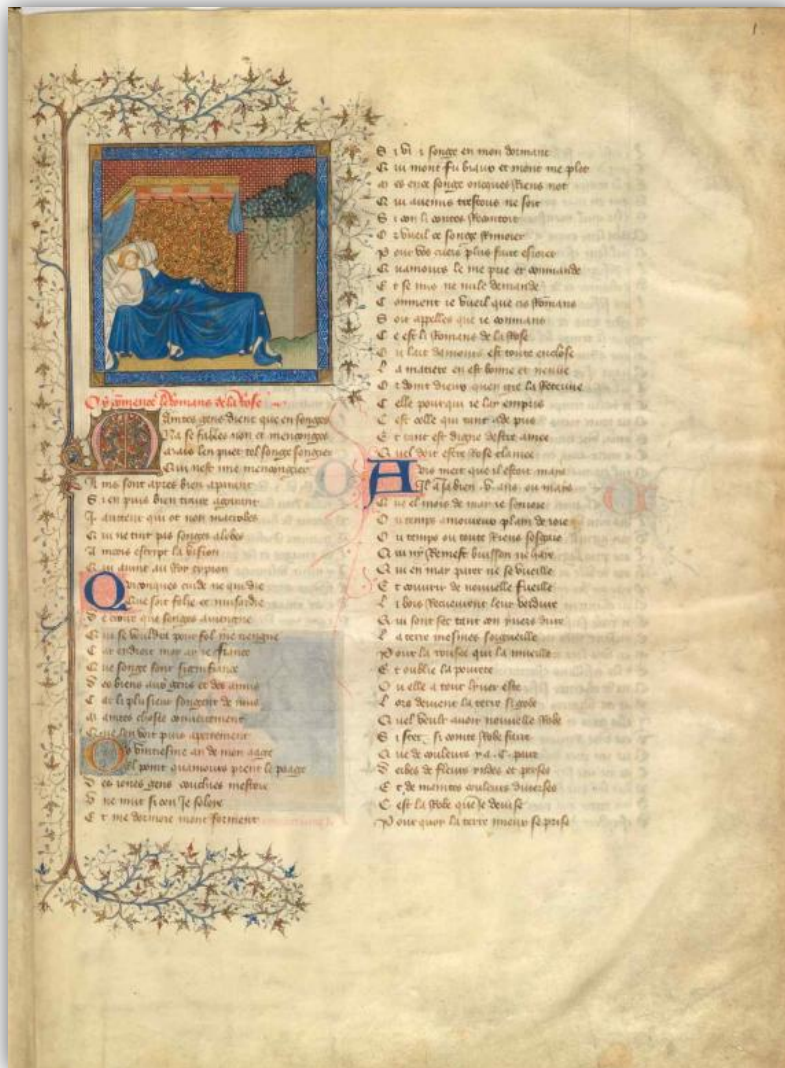 Cy comence le Romans de la Rose
Maintes gens dient que en songes
Na se fables non et mençonges
Mais len puet tel songe songier
Qui nest mie mençongier
Ains sont apres bien aparant
Si en puis bien traire a garant
J. aucteur qui ot non macrobes
Qui ne tint pas songes a lobes
A escript la vision
Qui avint au Roy cypion
Quiconques cuide ne qui die
Que soit folie et musardie
De croire que songes aviengne
Qui se vouldra pour fol me tiengne
Car endroit moy ay ie fiance
Que songe sont signifiance
Des biens aux gens et des anuis
Car li plusieur songent de nuis
Maintes choses couvertement
Que len voit puis apertement
Ou vintiesme an de mon aage
El point quamours prent le paage
Des iones gens couchies mestoie
Une nuit si com Je soloie
Et me dormoie mont forment
1
Si vi i songe en mon dormant
Qui mont fu biaux et mont me plot
Mes en ce songe oncques Riens not
Qui avenus trestous ne soit
Si con li contes Recontoit
Or vueil ce songe Rimoier
Pour vos cuers plus faire esioier
Quamours le me prie et commande
Et se nus ne nulle demande
Comment ie vueil que cis Romans
Soit appelles que ie commans
Ce est li Romans de la Rose
Ou lart damours est toute enclose
La matiere en est bonne et neuve
Or doint dieux quen gre la Recoive
Celle pour qui ie lay empris
Cest celle qui tant a de pris
Et tant est digne destre amee
Quel doit estre Rose clamee
Avis mert que il estoit mays
Il a Ja bien .v. ans ou mays
Que el mois de may ie songoie
Ou temps amoureux plain de ioie
Ou temps ou toute Riens sesgaie
Qui ny Remest buisson ne haie
Qui en may parer ne se vueille
Et couvrir de nouvelle fueille
Li bois Recueuvrent leur verdure
Qui sont sec tant con yvers dure
La terre mesmes sorgueille
Pour la rousee qui la mueille
Et oublie la povrete
Ou elle a tout lyver este
Lors devient la terre si gobe
Quel veult avoir nouvelle Robe
Si scet si cointe Robe faire
Que de couleurs y a .C. paire
Derbes de fleurs yndes et perses
Et de maintes couleurs diverses
Cest la Robe que Je devise
Pour quoy la terre mieux se prise